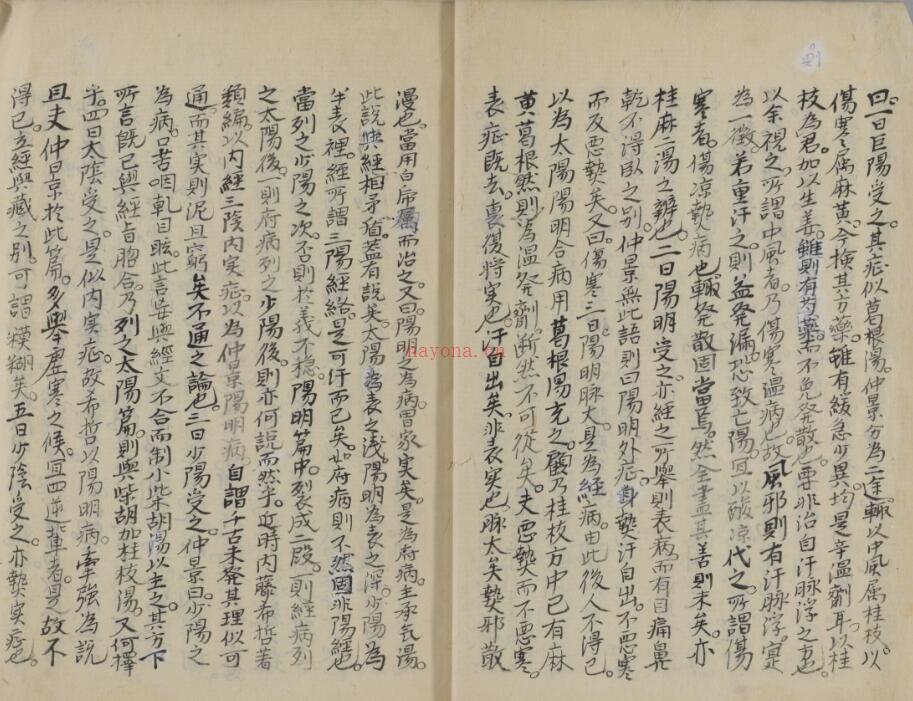 曰一日巨陽受之其症似葛根湯仲景分為二途輙以中風属桂枝以
傷寒属麻黄今検其方藥雖有緩急少異均是辛温劑耳以桂
枝為君加以生姜雖則有芍藥而不免発散要非治自汗脉浮之
以余視之所謂中風者乃傷寒温病也故風邪則有汗脉浮寔
為一徴若重汗之則益発漏恐致亡陽宜以酸凉代之所謂傷
寒者傷凉熱病也輙発散固當焉然全盡其善則未矣亦
桂麻二湯之辨也二日陽明受之亦経之所舉則表病而有目痛鼻
乾不得臥之別仲景無此語則曰陽明外症身熱汗自出不悪寒
而反悪熱矣又曰傷寒三日陽明脉大是為経病由此後人不得已
以為太陽陽明合病用葛根湯充之顧乃桂枝方中已有麻
黄葛根然則為温発劑断然不可従矣夫悪熱而不悪寒
表症既去裏復将実也汗自出矣非表実也脉大矣熱邪散
漫也當用白帍属而治之又曰陽明之為病胃家実矣是為府病主承気湯
此説與経相矛盾蓋有説矣太陽為表之浅陽明為表之深少陽為
半表裡経所謂三陽経絡是可汗而已矣如府病則不然固非陽経也
當列之少陽之次否則於義不穏陽明篇中裂成二段則経病列
之太陽後則府病列之少陽後則亦何説而然乎近時内藤希哲著
類編以内経三陰内実症以為仲景陽明病自謂千古未発其理似可
通而其実則泥且窮矣不通之論也三日少陽受之仲景曰少陽之
為病口苦咽乾目眩此言毎與経文不合而制小柴胡湯以主之其方下
所言既已與経旨脗合乃列之太陽篇則與柴胡加桂枝湯又何擇
乎四日太陰受之是似内実症故希哲以陽明病牽強為説
且夫仲景於此篇多舉虚寒之候宜四逆軰者是故不
得已立経與藏之別可謂糢糊矣五日少陰受之亦熱実症也
hayona.cn